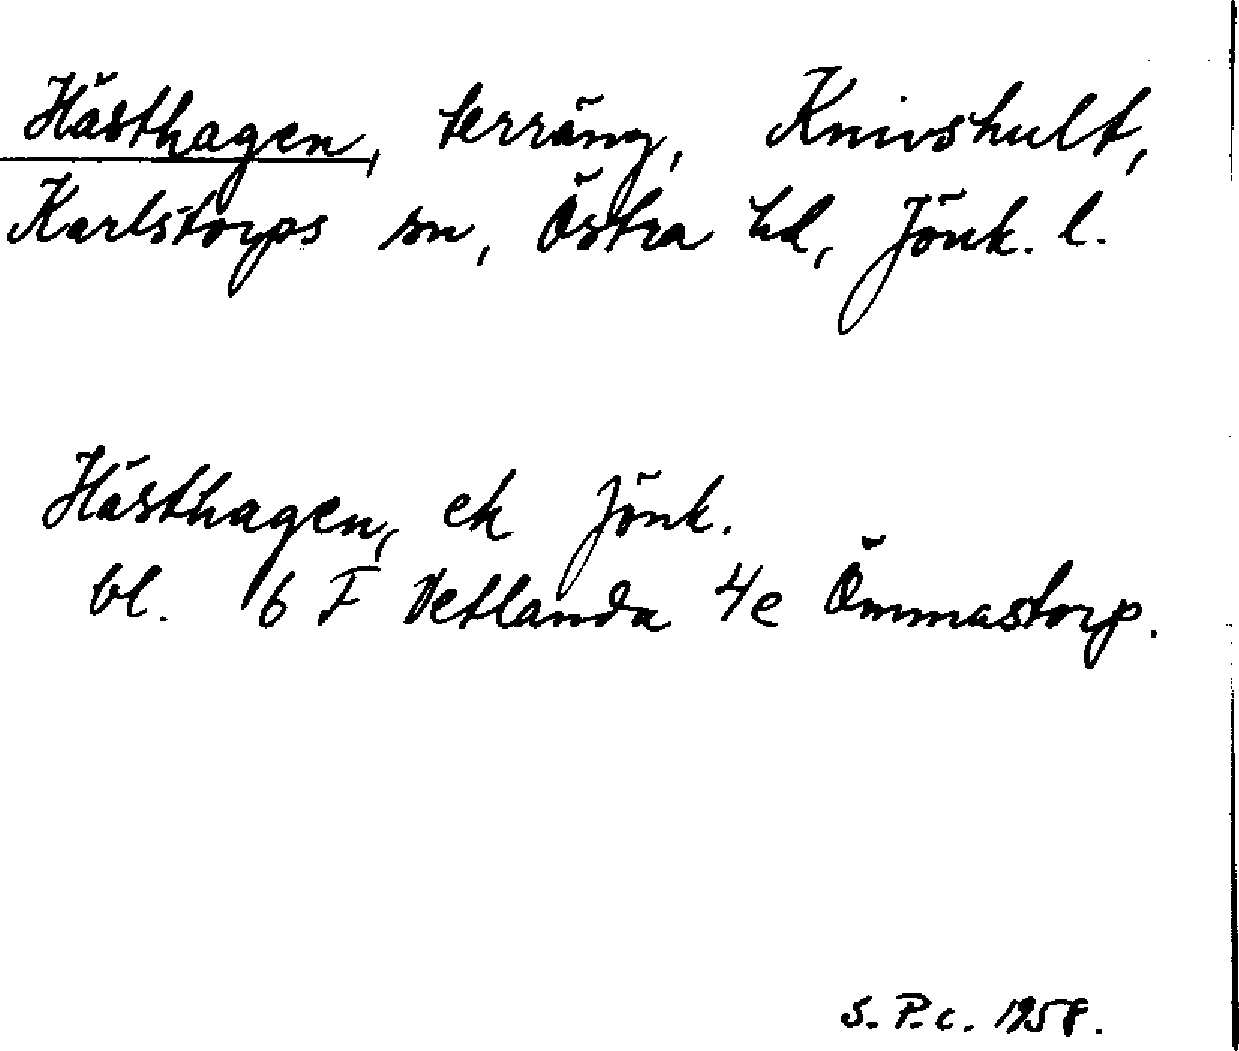 Hästhagen, terräng, Knivshult,
Karlstorps sn, Östra hd, Jönk. l.
Hästhagen, ek Jönk.
bl. 6 F Vetlanda 4e Ömmastorp.
S. P. c. 1958.